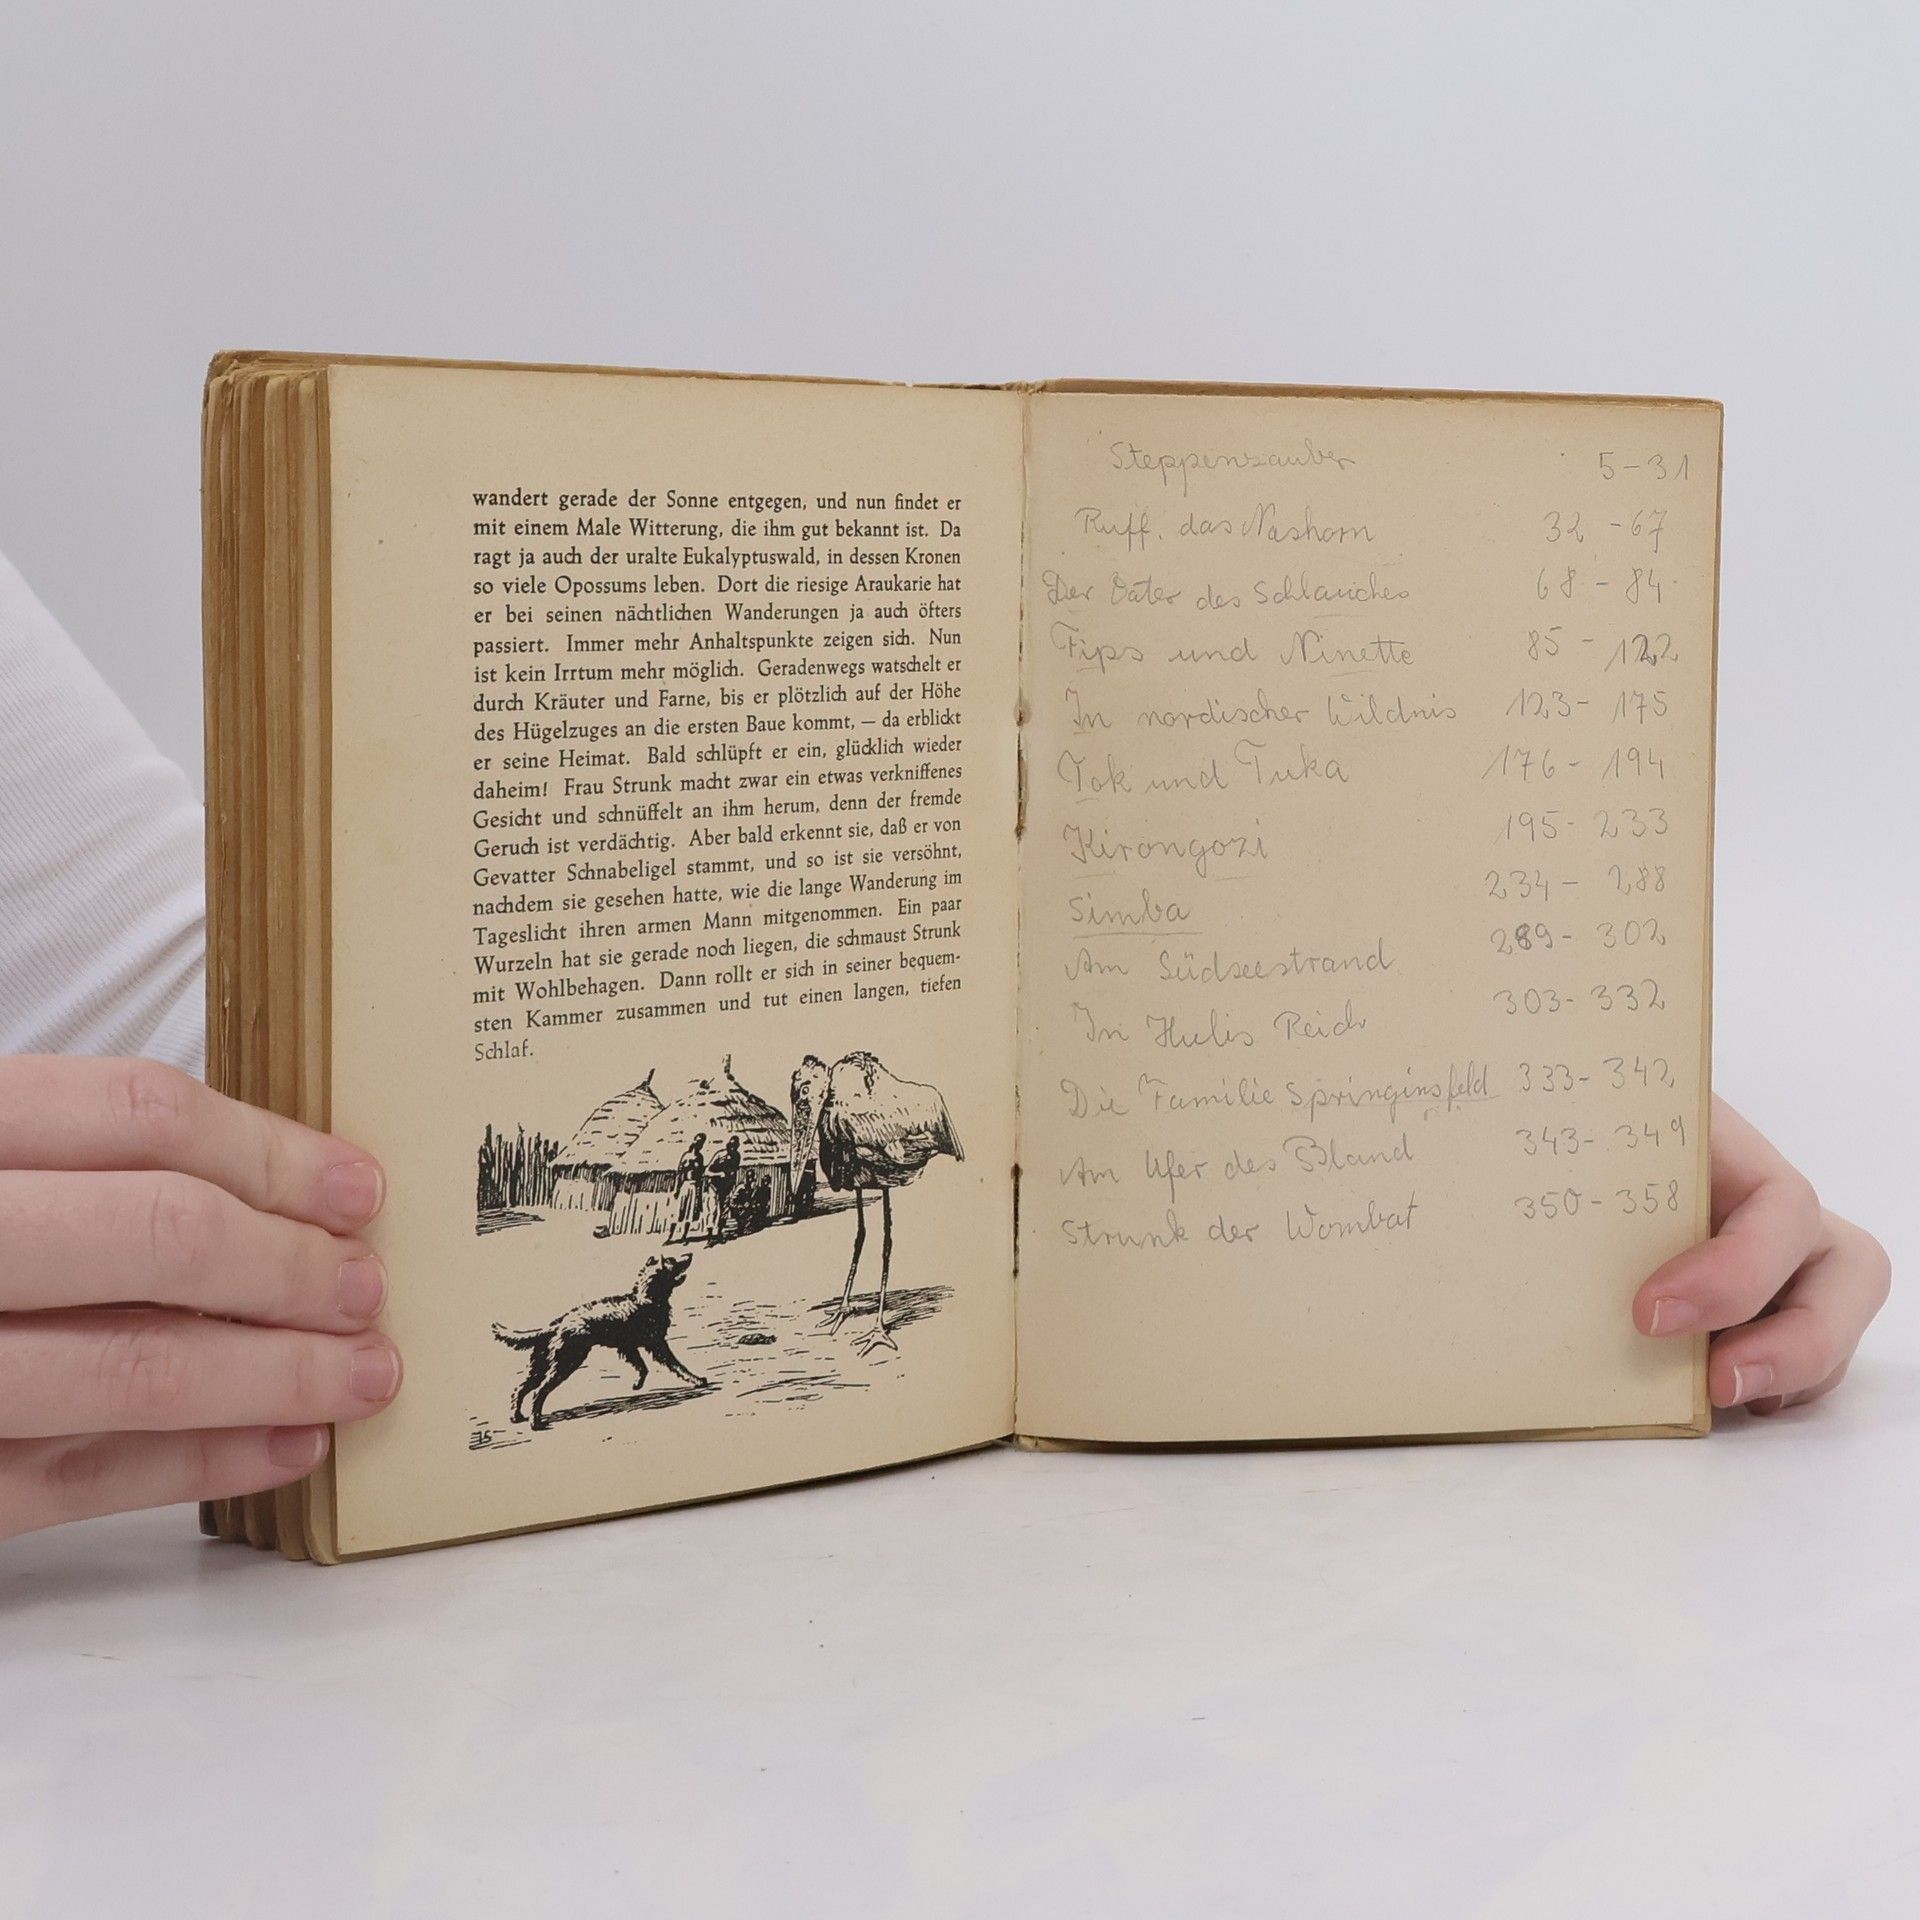 wandert gerade der Sonne entgegen, und nun findet er
mit einem Male Witterung, die ihm gut bekannt ist. Da
ragt ja auch der uralte Eukalyptuswald, in dessen Kronen
so viele Opossums leben. Dort die riesige Araukarie hat
er bei seinen nächtlichen Wanderungen ja auch öfters
passiert. Immer mehr Anhaltspunkte zeigen sich. Nun
ist kein Irrtum mehr möglich. Geradenwegs watschelt er
durch Kräuter und Farne, bis er plötzlich auf der Höhe
des Hügelzuges an die ersten Baue kommt, — da erblickt
er seine Heimat. Bald schlüpft er ein, glücklich wieder
daheim! Frau Strunk macht zwar ein etwas verkniffenes
Gesicht und schnüffelt an ihm herum, denn der fremde
Geruch ist verdächtig. Aber bald erkennt sie, daß er von
Gevatter Schnabeligel stammt, und so ist sie versöhnt,
nachdem sie gesehen hatte, wie die lange Wanderung im
Tageslicht ihren armen Mann mitgenommen. Ein paar
Wurzeln hat sie gerade noch liegen, die schmaust Strunk
mit Wohlbehagen. Dann rollt er sich in seiner bequem-
sten Kammer zusammen und tut einen langen, tiefen
Schlaf.
Steppenzauber 5-31
Ruff. das Nashorn 32-67
Der Vater des Schlauches 68-84
Fips und Ninette 85-122
In nordischer Wildnis 123-175
Tok und Tuka 176-194
Kirongozi 195-233
Simba 234-288
Am Südseestrand 289-302
In Hulis Reich 303-332
Die Familie Springinsfeld 333-342
Am Ufer des 343-349
Strunk der Wombat 350-358